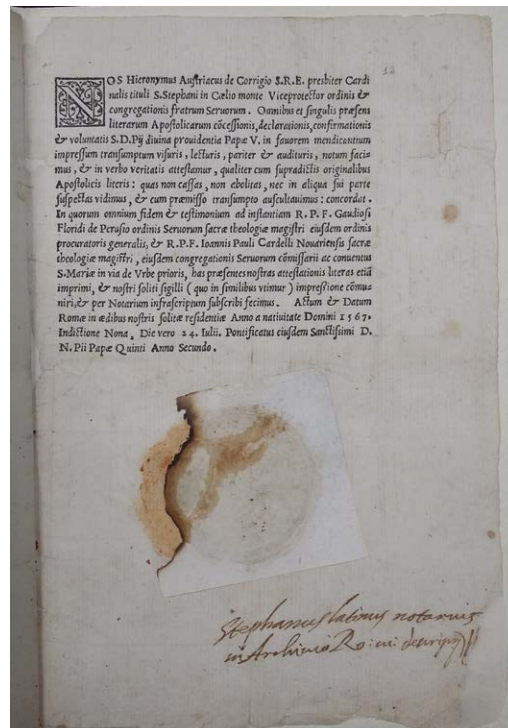 12
NOS Hieronymus Austriacus de Corrigio S.R.E. presbiter Cardi
nalis tituli S.Stephani in Cælio monte Viceprotector ordinis &
congregationis fratrum Seruorum. Omnibus et singulis præsens
literarum Apostolicarum cōcessionis, declarationis, confirmationis
& voluntatis S.D.Pij diuina prouidentia Papæ V. in fauorem mendicantium
impressum transumptum visuris, lecturis, pariter & audituris, notum facia
mus, & in verbo veritatis attestamur, qualiter cum supradictis originalibus
Apostolicis literis: quas non cassas, non abolitas, nec in aliqua sui parte
suspectas vidimus, & cum præmisso transumpto auscultauimus: concordat.
In quorum omnium fidem & testimonium ad instantiam R. P. F. Gaudiosi
Floridi de Perusio ordinis Seruorum sacræ theologiæ magistri eiusdem ordinis
procuratoris generalis, & R.P.F. Ioannis Pauli Cardelli Nouariensis sacræ
theologiæ magistri, eiusdem congregationis Seruorum cōmissarij ac conuentus
S.Mariæ in via de Vrbe prioris, has præsentes nostras attestationis literas etiā
imprimi, & nostri soliti sigilli (quo in similibus vtimur) impressione cōmu-
niri, & per Notarium infrascriptum subscribi fecimus. Actum & Datum
Romæ in ædibus nostris solitæ residentiæ Anno a natiuitate Domini 1567.
Indictione Nona. Die vero 24. Iulii. Pontificatus eiusdem Sanctissimi D.
N. Pii Papæ Quinti Anno Secundo.
Stephanus latinus notarius
in Archiuio Ro: cu: